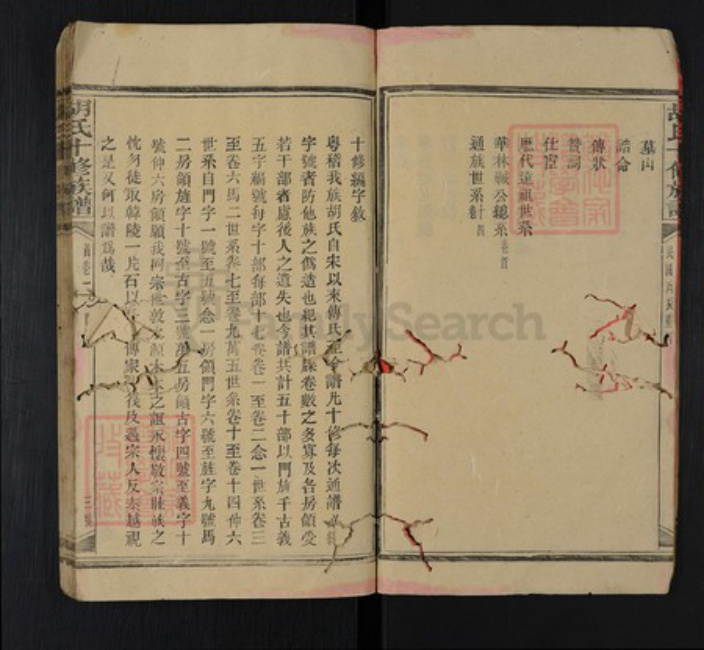 墓山
誥命
傳狀
贊詞
仕宦
歷代遠祖世系
華林城公總系卷首
通族世系卷十四
十修編字敘
粵稽我族胡氏自宋以來傳氏至今譜凡十修每次通譜
字號者防他族之偽造也紀其譜牒卷數之多寡及各房領受
若干部者慮後人之遺失也今譜共計五十部以門旌千古義
五字編號每字十部每部十七卷卷一至卷二念一世系卷三
至卷六馬二世系卷七至卷九萬五世系卷十至卷十四仲六
世系自門字一號至五號念一房領門字六號至旌字九號馬
二房領旌字十號至古字三號萬五房領古字四號至義字十
號仲六房領願我同宗世敦之誼永懷敬宗睦族之
忱勿徒取韓陵一片石以傳家伐及愚宗人反秦越視
之是又何以譜為哉
胡氏十修族譜
FamilySearch